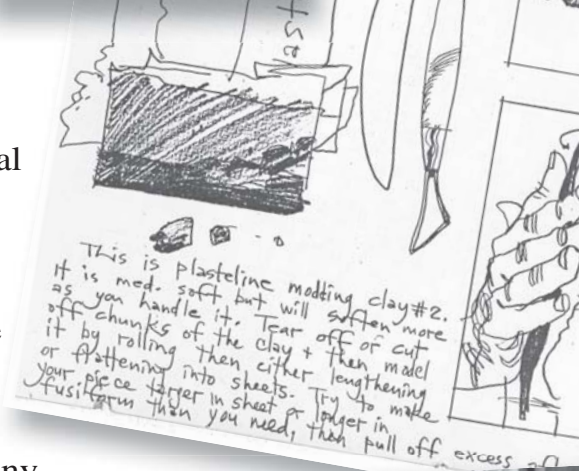 al
This is plasteline modting clay #2.
It is med. soft but will soften more
as you handle it. Tear off or cut
off chunks of the clay + then model
it by rolling then either lengthening
or flattening into sheets. Try to make
your piece larger in sheet or longer in
fusiform than you need, then pull off excess
ny